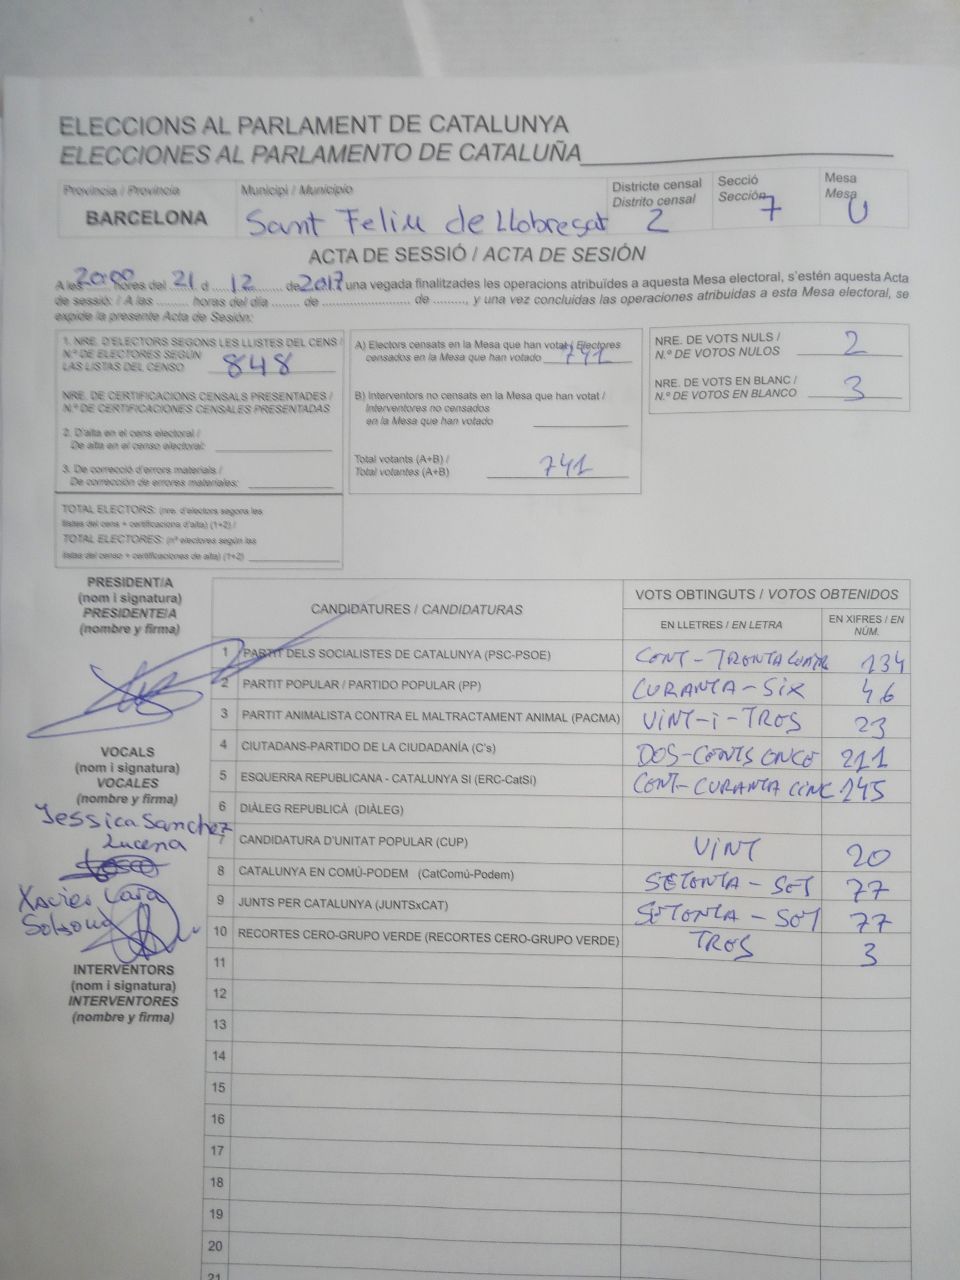 ELECCIONS AL PARLAMENT DE CATALUNYA
ELECCIONES AL PARLAMENTO DE CATALUÑA
Província / Provincia
BARCELONA
Municipi / Municipio
Sant Feliu de Llobregat
Districte censal
Distrito censal
2
Secció
Sección
7
Mesa
Mesa
U
ACTA DE SESSIÓ / ACTA DE SESIÓN
A les 20:00 hores del 21 d 12 de 2017 una vegada finalitzades les operacions atribuïdes a aquesta Mesa electoral, s'estén aquesta Acta
de sessió: / A las ........ horas del día ........ de ........................ de ........, y una vez concluidas las operaciones atribuidas a esta Mesa electoral, se
expide la presente Acta de Sesión:
1. NRE. D'ELECTORS SEGONS LES LLISTES DEL CENS /
N.º DE ELECTORES SEGÚN
LAS LISTAS DEL CENSO 848
NRE. DE CERTIFICACIONS CENSALS PRESENTADES /
N.º DE CERTIFICACIONES CENSALES PRESENTADAS
2. D'alta en el cens electoral /
De alta en el censo electoral:
3. De correcció d'errors materials /
De corrección de errores materiales:
TOTAL ELECTORS: (nre. d'electors segons les
llistes del cens + certificacions d'alta) (1+2) /
TOTAL ELECTORES: (nº electores según las
listas del censo + certificaciones de alta) (1+2)
A) Electors censats en la Mesa que han votat / Electores
censados en la Mesa que han votado 741
B) Interventors no censats en la Mesa que han votat /
Interventores no censados
en la Mesa que han votado
Total votants (A+B) /
Total votantes (A+B) 741
NRE. DE VOTS NULS /
N.º DE VOTOS NULOS 2
NRE. DE VOTS EN BLANC /
N.º DE VOTOS EN BLANCO 3
PRESIDENT/A
(nom i signatura)
PRESIDENTE/A
(nombre y firma)
VOCALS
(nom i signatura)
VOCALES
(nombre y firma)
Jessica Sanchez
Lucena
Xavier
INTERVENTORS
(nom i signatura)
INTERVENTORES
(nombre y firma)
CANDIDATURES / CANDIDATURAS
VOTS OBTINGUTS / VOTOS OBTENIDOS
EN LLETRES / EN LETRA
EN XIFRES / EN NÚM.
1 PARTIT DELS SOCIALISTES DE CATALUNYA (PSC-PSOE) CENT-TRENTA 134
2 PARTIT POPULAR / PARTIDO POPULAR (PP) CURANTA-SIX 46
3 PARTIT ANIMALISTA CONTRA EL MALTRACTAMENT ANIMAL (PACMA) VINT-i-TRES 23
4 CIUTADANS-PARTIDO DE LA CIUDADANÍA (C's) DOS-CENTS ONCE 211
5 ESQUERRA REPUBLICANA - CATALUNYA SI (ERC-CatSí) CENT-CURANTA CINC 145
6 DIÀLEG REPUBLICÀ (DIÀLEG)
7 CANDIDATURA D'UNITAT POPULAR (CUP) VINT 20
8 CATALUNYA EN COMÚ-PODEM (CatComú-Podem) SETENTA-SET 77
9 JUNTS PER CATALUNYA (JUNTSxCAT) SETENTA-SET 77
10 RECORTES CERO-GRUPO VERDE (RECORTES CERO-GRUPO VERDE) TRES 3
11
12
13
14
15
16
17
18
19
20
21